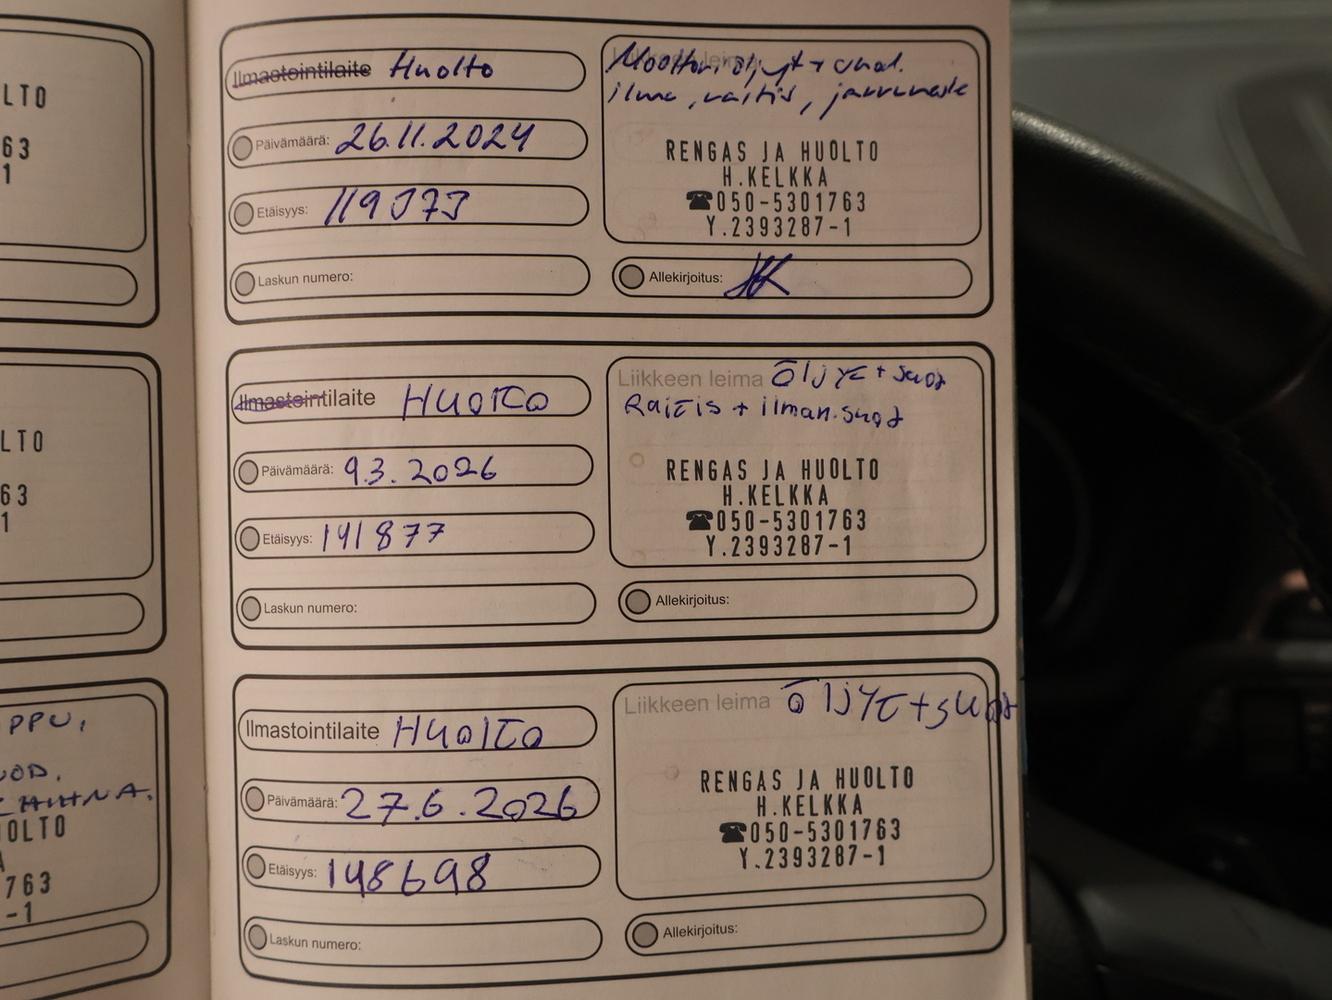 LTO
63
1
LTO
63
1
PPU,
UOD.
HIHNA.
OLTO
A
763
-1
Ilmastointilaite Huolto
Päivämäärä: 26.11.2024
Etäisyys:
Laskun numero:
Moottoriöljyt + suod.
ilma, raitis, jarruneste
RENGAS JA HUOLTO
H.KELKKA
☎050-5301763
Y.2393287-1
Allekirjoitus: HK
Ilmastointilaite HUOLTO
Päivämäärä: 9.3.2026
Etäisyys: 141877
Laskun numero:
Liikkeen leima ÖljYt + suod
Raitis + ilman.suod
RENGAS JA HUOLTO
H.KELKKA
☎050-5301763
Y.2393287-1
Allekirjoitus:
Ilmastointilaite HUOLTO
Päivämäärä: 27.6.2026
Etäisyys: 148698
Laskun numero:
Liikkeen leima ÖlJYt + suod
RENGAS JA HUOLTO
H.KELKKA
☎050-5301763
Y.2393287-1
Allekirjoitus: